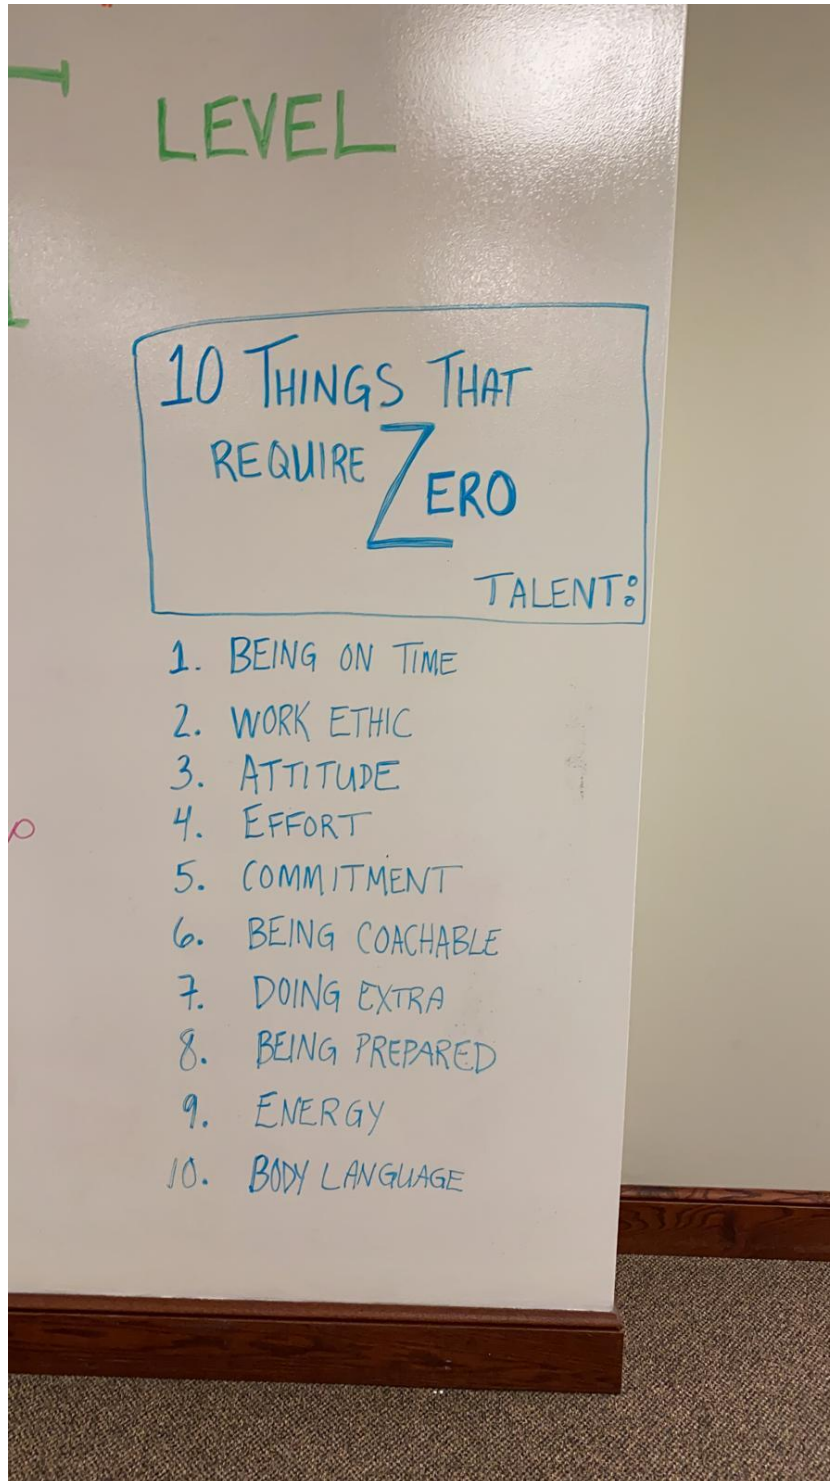 LEVEL
10 THINGS THAT
REQUIRE ZERO
TALENT:
1. BEING ON TIME
2. WORK ETHIC
3. ATTITUDE
4. EFFORT
5. COMMITMENT
6. BEING COACHABLE
7. DOING EXTRA
8. BEING PREPARED
9. ENERGY
10. BODY LANGUAGE